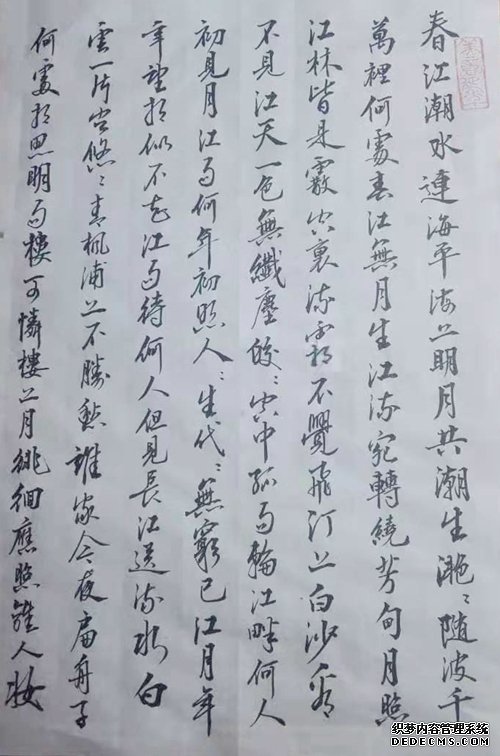 春江潮水連海平海上明月共潮生灧〻随波千
萬裡何處春江無月生江流宛轉繞芳甸月照
江林皆是霰空裏流霜不覺飛汀上白沙看
不見江天一色無纖塵皎〻空中孤月輪江畔何人
初見月江月何年初照人〻生代〻無窮已江月年
年望相似不知江月待何人但見長江送流水白
雲一片去悠〻青楓浦上不勝愁誰家今夜扁舟子
何處相思明月樓可憐樓上月徘徊應照離人妝
织梦内容管理系统
DEDECMS.COM